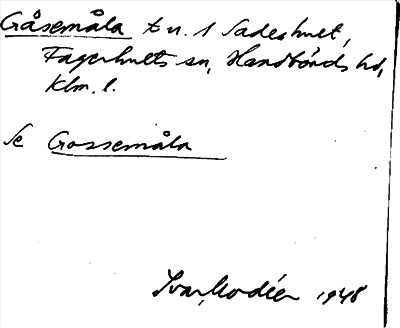 Gåsemåla t u. 1 Sadeshult,
Fagerhults sn, Handbörds hd,
Klm. l.
Se Gossemåla
Ivar Modéer 1948